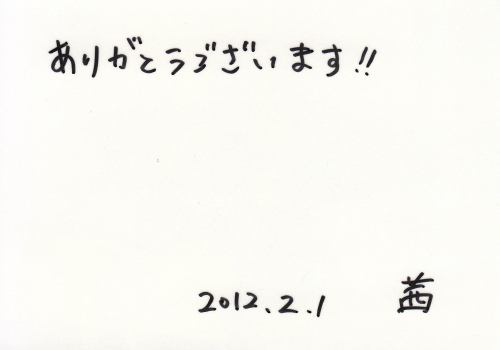 ありがとうございます!!
2012.2.1 茜